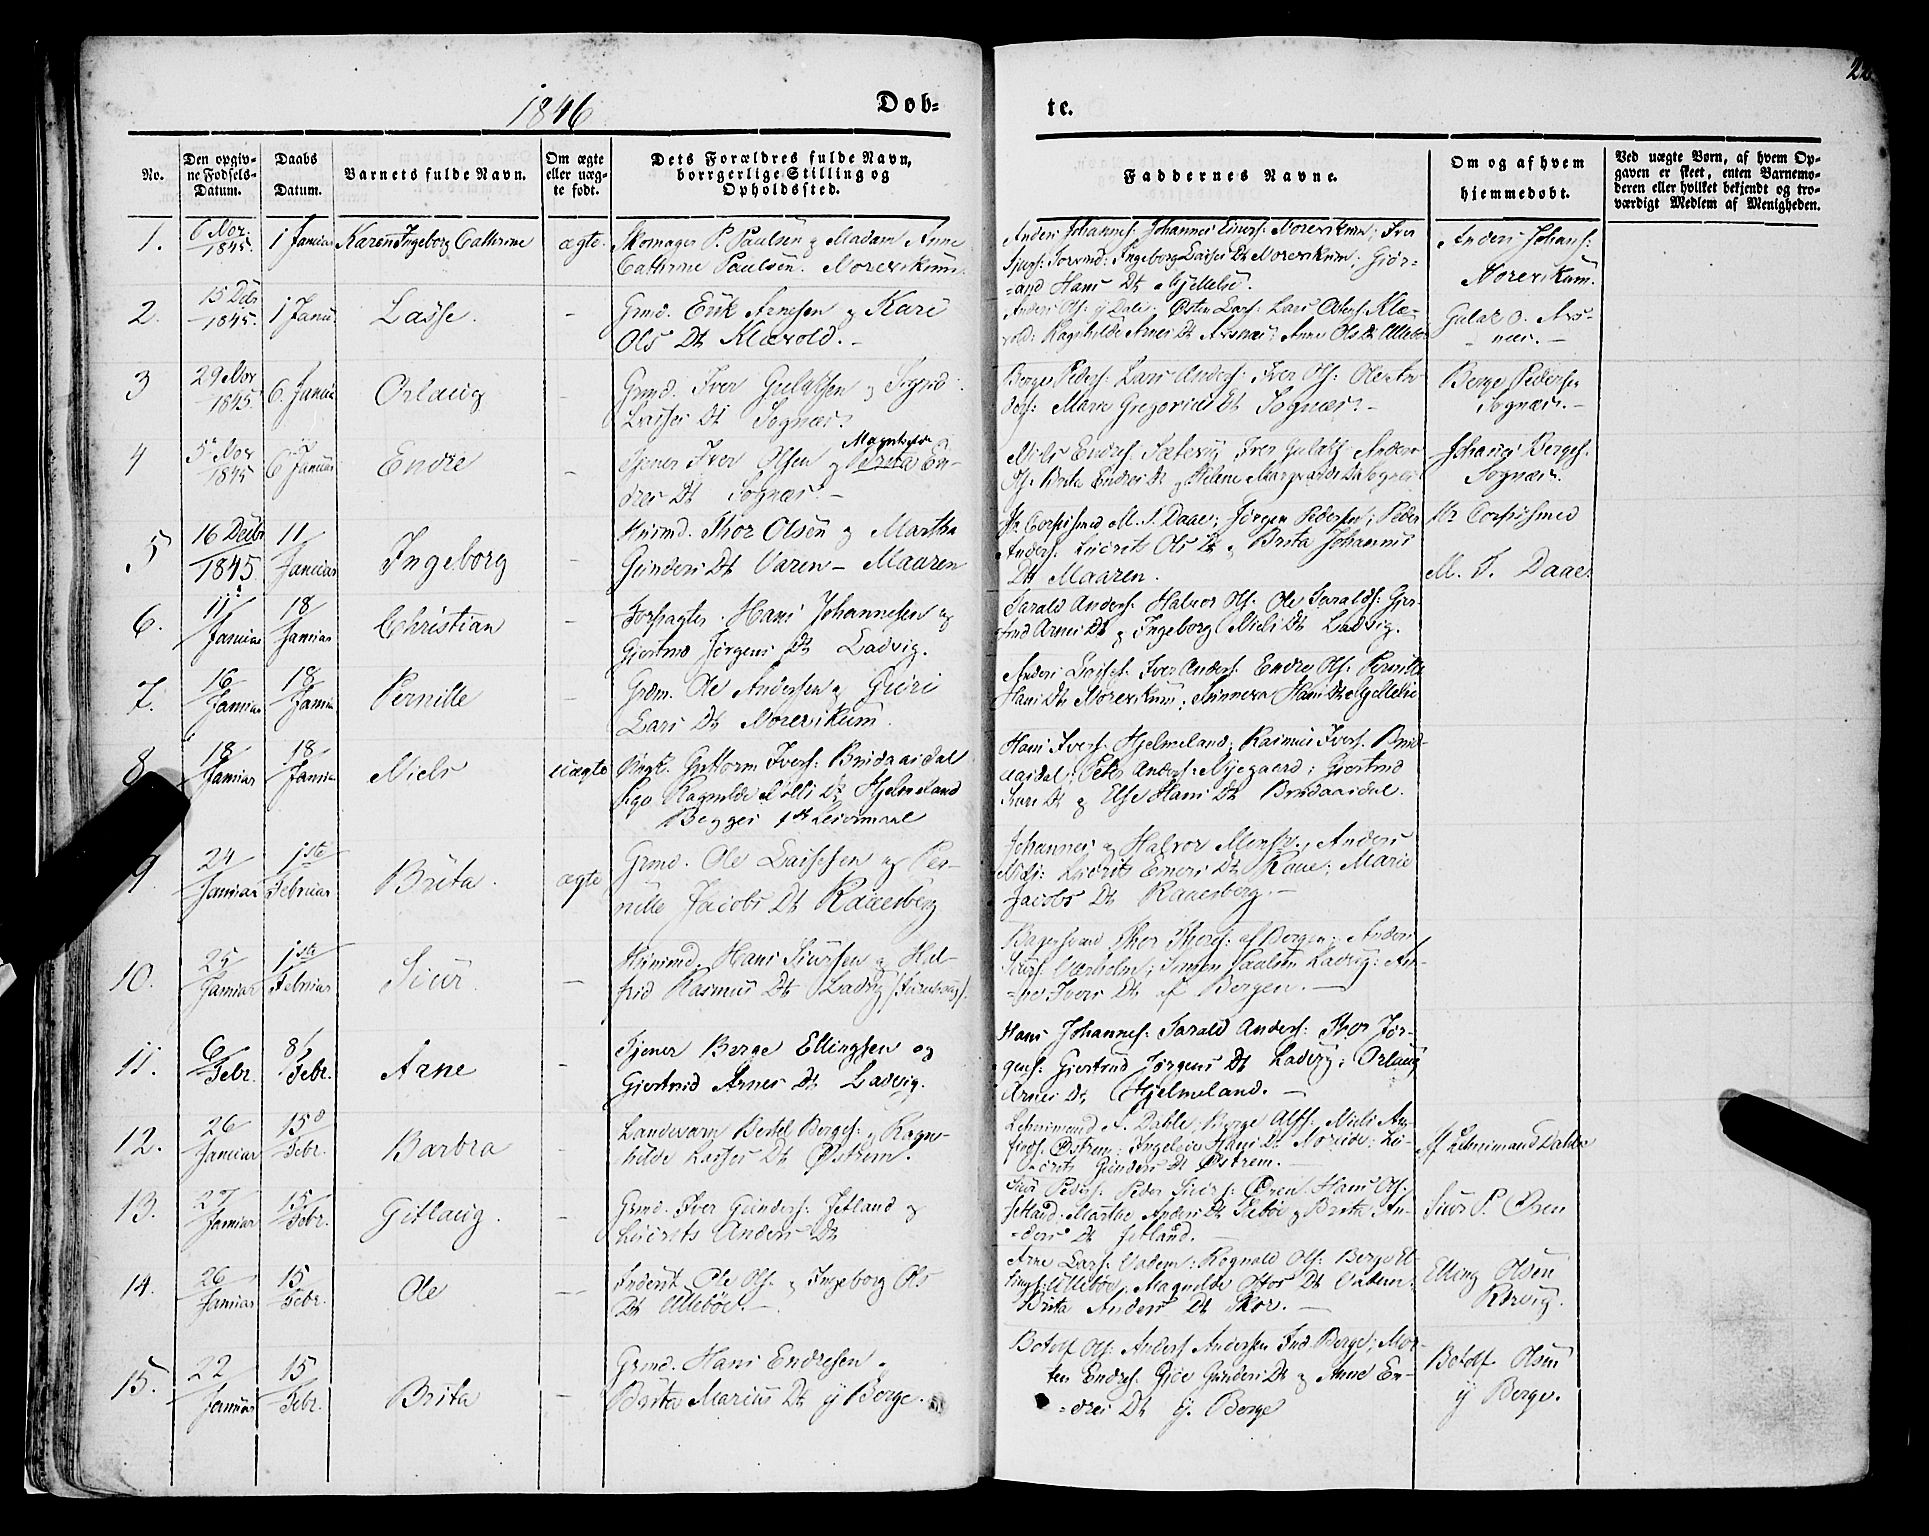 1846
Døb-
te.
22
No.
Den opgiv-
ne Fødsels-
Datum.
Daabs
Datum.
Barnets fulde Navn.
Om ægte
eller uæg-
te født.
Dets Forældres fulde Navn,
borrgerlige Stilling og
Opholdssted.
Faddernes Navne.
Om og af hvem
hjemmedøbt.
Ved uægte Børn, af hvem Op-
gaven er skeet, enten Barnemo-
deren eller hvilket bekjendt og tro-
værdigt Medlem af Menigheden.
1.
6 Nov.
1845.
1 Januar
Karen Ingeborg Cathrine
ægte.
Skomager P. Paulsen og Madam Anne
Cathrine Paulsen. Norevikum.
Anders Johannes: Johannes Einers: Norevikum; Iver
Sjurs: Ingeborg Lasses Dt Norevikum; Giør-
=and Hans Dt Gjellelie.
Anders Johans:
Norevikum.
2.
15 Debr
1845.
1 Janu
Lasse.
–
Grmd. Erik Arnesen og Kari
Ols Dt Klævold. –
Anders Ols: y Dale, Østen Lars: Lars Ostens: Klæ-
vold: Ragnhilde Arnes Dt Avsnæs: Anne Ols Dt Ullebø
Gulak O. Avs-
- næs. –
3
29 Nov
1845.
6. Januar
Orlaug
–
Grmd. Iver Gulaksen og Synd.
Lasses Dt Sognæs.
Berge Peders: Lars Anders: Iver Ols: Ole An-
ders: Marie Gregorius Dt Sognæs. –
Berge Pedersen
Sognæs. –
4
5 Nov
1845
6 Januar
Endre
–
Tjener Iver Olsen og Brita En-
Magnhilde
dres Dt Sognæs. –
Niels Endres: Sætevig Iver Gulaks: Anders
Ols: Brita Endres Dt og Helene Margrethe Dt Sognæs
Johannes Berges.
Sognæs.
5
16 Decbr
1845
11
Januar
Ingeborg
–
Husmd. Thor Olsen og Martha
Gunders Dt Varen – Maaren
Hr Corpsismed M. T. Daae; Jørgen Pedersen; Peder
Anders: Lucrits Ols Dt og Brita Johannes
Dt Maaren.
Hr Corpsismed
M. T. Daae.
6.
11
Januar
18
Januar
Christian
–
Forpagter. Hans Johannesen og
Giertrud Jørgens Dt Ladvig.
Sarald Anders: Halvor Ols: Ole Saralds: Gier-
trud Arnes Dt og Ingeborg Niels Dt Ladvig.
7.
16
Januar
18
Janua
Pernille
–
Grdm. Ole Andersen og Guri
Lars Dt Norevikum.
Anders Lasses: Iver Anders: Endre Ols: Pernille
Hans Dt Norevikum; Synneva Hans Dt Gjellelie
8
18
Januar
18
Janua
Niels
uægte
Ungk. Guttorm Ivers: Brudaasdal
Pige Ragnilde Niels Dt Hjelmeland
Begges 1ste Leiermaal
Hans Ivers: Hjelmeland; Rasmus Ivers: Brud-
aasdal; Peter Anders: Nyegaard; Giertrud
Siurs Dt og Else Hans Dt Brudaasdal.
9.
24
Januar
1ste
Februar
Brita.
ægte
Grmd. Ole Lassesen og Per-
nille Jacobs Dt Raaesberg
Johannes og Halvor Mons: Anders
Niels: Lucrits Emers Dt Raae; Marie
Jacobs Dt Raaesberg. –
10.
25
Januar
1ste
Februar
Siur
–
Husmd. Hans Siursen og Hel-
frid Rasmus Dt Ladvig
Thor Thors: af Bergen; Anders
Siurs: Værholm; Simon Paulsen Ladvig: An-
-ne Ivers Dt af Bergen. –
11.
6
Febr.
8
Febr.
Arne
–
Tjener Berge Ellingsen og
Giertrud Arnes Dt Ladvig.
Hans Johannes: Sarald Anders: Thor Jør-
gens: Giertrud Jørgens Dt Ladvig; Orlaug
Arnes Dt Hjelmeland. –
12.
26
Januar
15
Febr.
Barbra
–
Landevarn Bertel Berges: og Ragn-
hilde Lasses Dt Østrem.
Lehnsmand A. Dahle; Berge Alfs: Niels An-
finds: Østrem; Ingelev Hans Dt Noreide; Lu-
-crits Gunders Dt Østrem. –
Af Lehnsmand Dahle
13.
27
Januar
15
Febr.
Gitlaug.
–
Grmd. Iver Gunders: Jetland og
Lucrits Anders Dt
Siur Peders: Peder Siurs: Øren: Hans Ols:
Jetland: Marthe Anders Dt Risbøe og Brita An-
-ders Dt Jetland. –
Siur P. Øren
14.
26
Januar
15
Febr.
Ole
–
Inderst Ole Ols. og Ingeborg Ols
Dt Ullebøe. –
Arne Lars: Vadem: Rognald Ols: Berge El-
lings: Ullebøe: Magnilde Ols Dt Vadem;
Brita Anders Dt Skor. –
Elling Olsen
Rørvig.
15.
22
Januar
15
Febr.
Brita
–
Grmd. Hans Endresen og
Brita Marius Dt y Berge.
Botolf Ols: Anders Andersen Ind Berge; Mor-
ten Endres: Gice Gunders Dt og Anne En-
-dres Dt y. Berge
Botolf Olsen
y Berge.